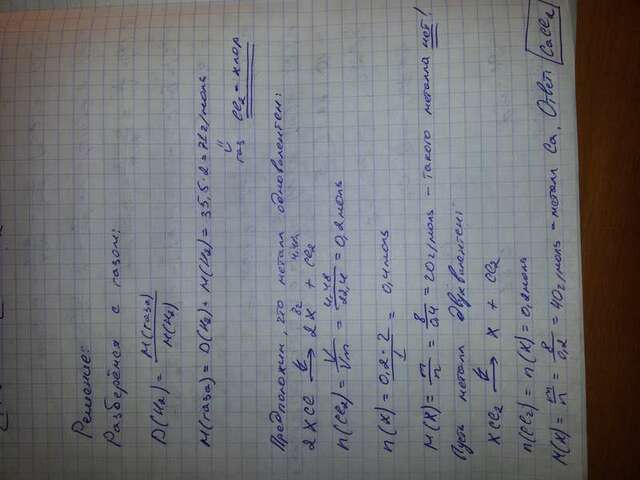 Решение:
Разберёмся с газом:
D(H₂) = M(газа) / M(H₂)
M(газа) = D(H₂) · M(H₂) = 35,5 · 2 = 71 г/моль
⇓
газ Cl₂ = хлор
Предположим, что металл одновалентен:
8г 4,48
2XCl →эл 2X + Cl₂
n(Cl₂) = V / Vm = 4,48 / 22,4 = 0,2 моль
n(X) = 0,2 · 2 / 1 = 0,4 моль
M(X) = m / n = 8 / 0,4 = 20 г/моль – такого металла нет!
Пусть металл двухвалентен:
XCl₂ →эл X + Cl₂
n(Cl₂) = n(X) = 0,2 моль
M(X) = m / n = 8 / 0,2 = 40 г/моль = металл Ca. Ответ CaCl₂